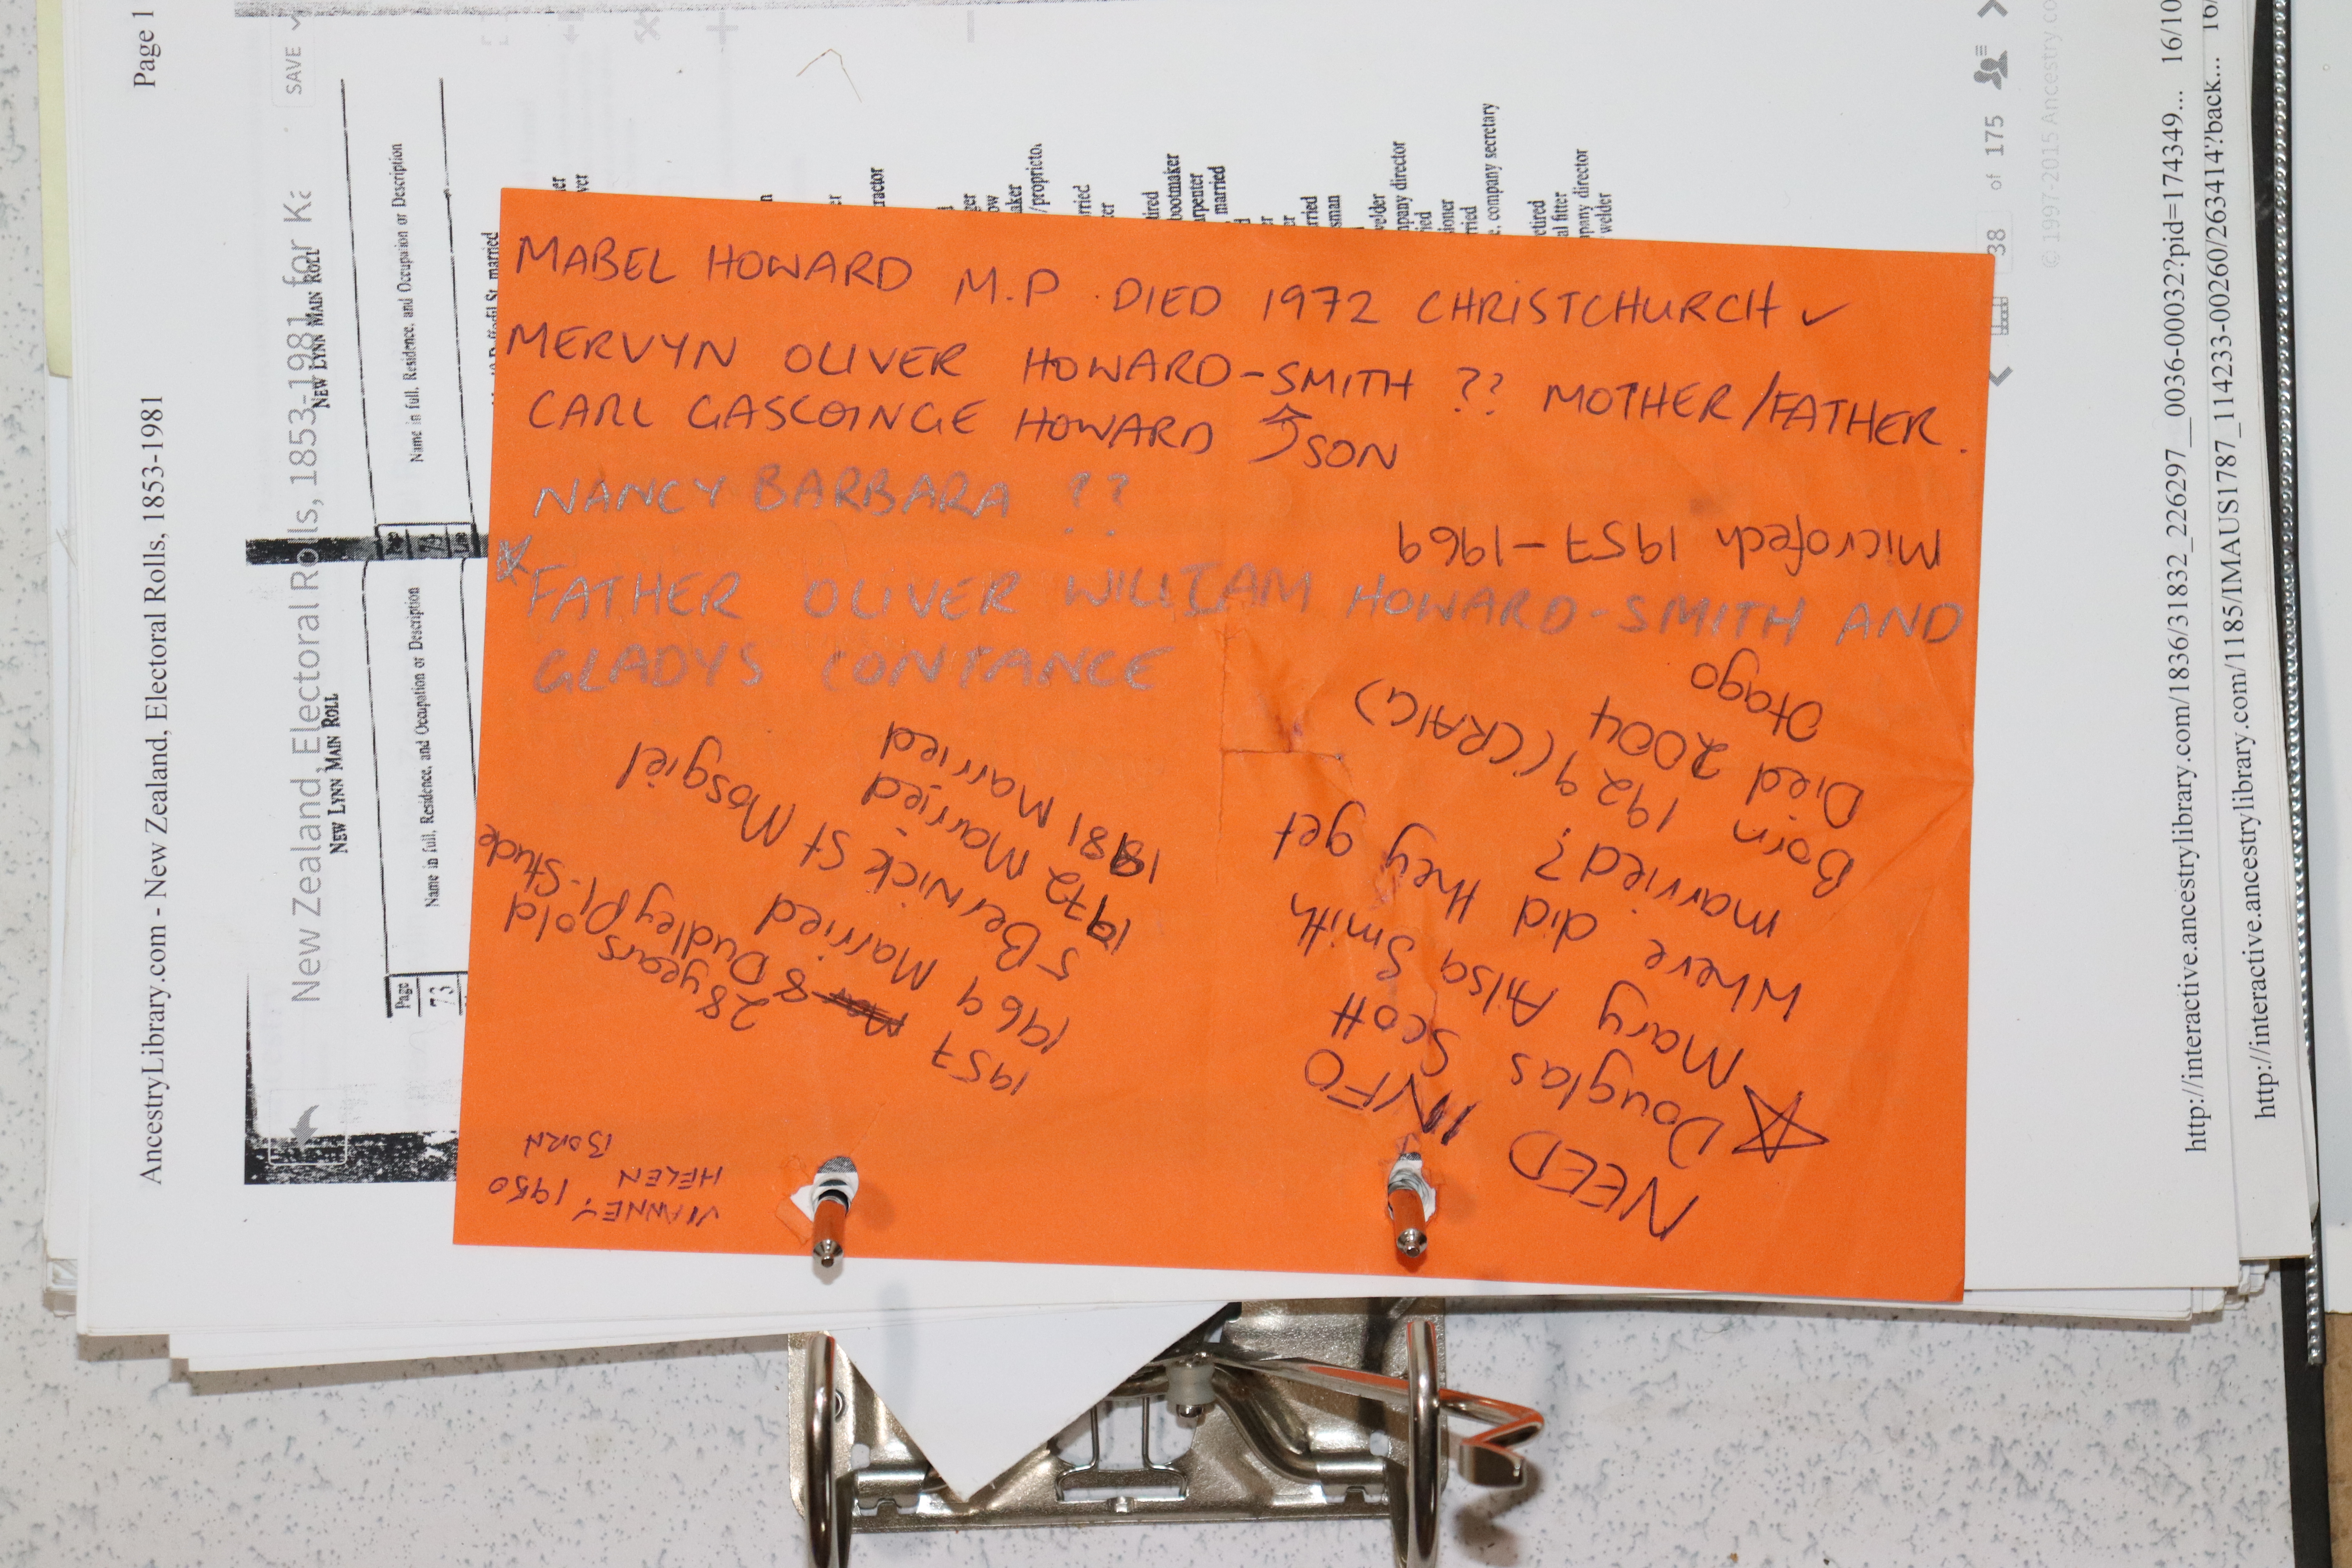 MABEL HOWARD M.P. DIED 1972 CHRISTCHURCH ✓
MERVYN OLIVER HOWARD-SMITH ?? MOTHER/FATHER.
CARL GASCOINGE HOWARD SON
NANCY BARBARA ??
FATHER OLIVER WILLIAM HOWARD-SMITH AND
GLADYS CONTANCE
NEED INFO
☆ Douglas Scott
Mary Ailsa Smith
Where did they get
married?
Born 1929 (CRAIG)
Died 2004
Otago
Microfech 1957-1969
VIANNEY 1950
HELEN
BORN
28 years old
1957 8 Dudley Pl. Stude
1969 Married
5 Berwick St Mosgiel
1972 Married
1981 Married
AncestryLibrary.com - New Zealand, Electoral Rolls, 1853-1981
Page 1
New Zealand, Electoral Rolls, 1853-1981 for
SAVE
NEW LYNN MAIN ROLL
NEW LYNN MAIN ROLL
Page
73
Name in full, Residence, and Occupation or Description
Name in full, Residence, and Occupation or Description
St, married
/proprieto
bootmaker
married
company secretary
38 of 175
© 1997-2015 Ancestry.co
http://interactive.ancestrylibrary.com/1836/31832_226297__0036-00032?pid=174349... 16/10
http://interactive.ancestrylibrary.com/1185/IMAUS1787_114233-00260/263414?back... 16/